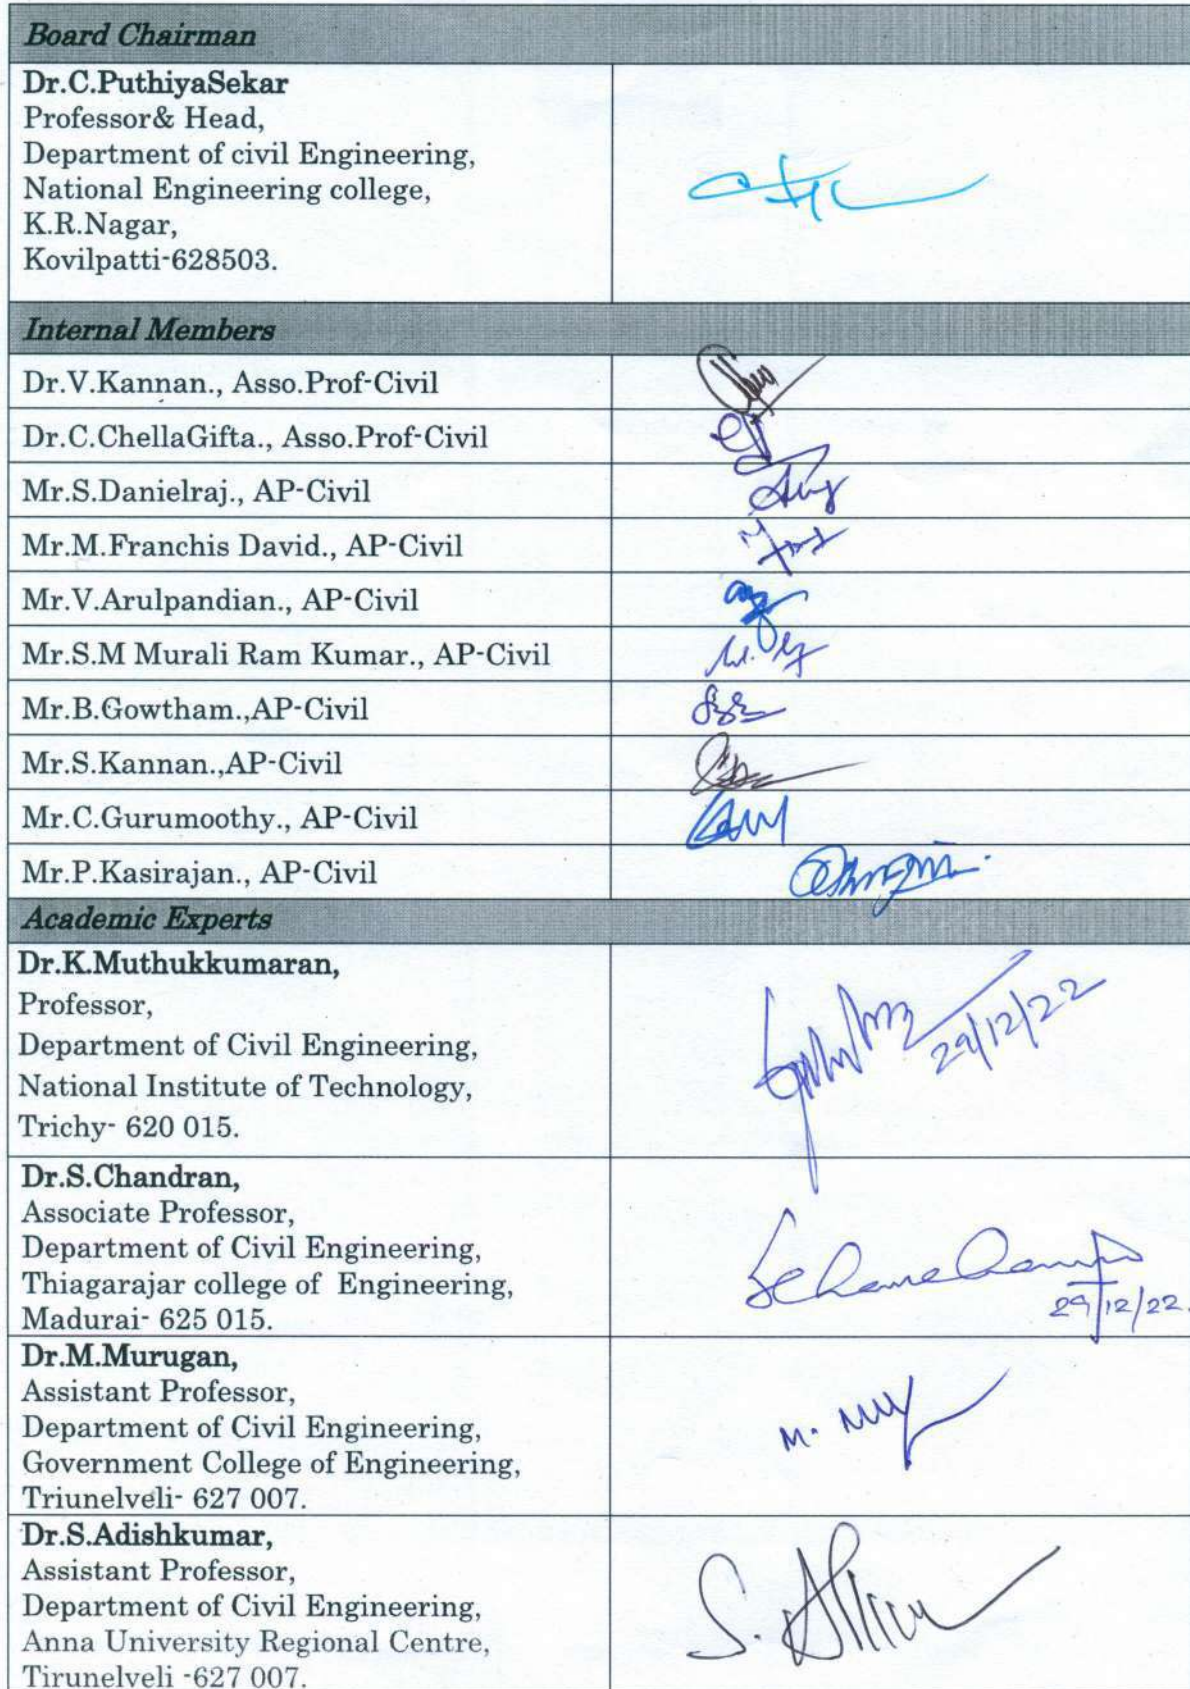 Board Chairman
Dr.C.PuthiyaSekar
Professor& Head,
Department of civil Engineering,
National Engineering college,
K.R.Nagar,
Kovilpatti-628503.
Internal Members
Dr.V.Kannan., Asso.Prof-Civil
Dr.C.ChellaGifta., Asso.Prof-Civil
Mr.S.Danielraj., AP-Civil
Mr.M.Franchis David., AP-Civil
Mr.V.Arulpandian., AP-Civil
Mr.S.M Murali Ram Kumar., AP-Civil
Mr.B.Gowtham.,AP-Civil
Mr.S.Kannan.,AP-Civil
Mr.C.Gurumoothy., AP-Civil
Mr.P.Kasirajan., AP-Civil
Academic Experts
Dr.K.Muthukkumaran,
Professor,
Department of Civil Engineering,
National Institute of Technology,
Trichy- 620 015.
29/12/22
Dr.S.Chandran,
Associate Professor,
Department of Civil Engineering,
Thiagarajar college of Engineering,
Madurai- 625 015.
29/12/22.
Dr.M.Murugan,
Assistant Professor,
Department of Civil Engineering,
Government College of Engineering,
Triunelveli- 627 007.
M.
Dr.S.Adishkumar,
Assistant Professor,
Department of Civil Engineering,
Anna University Regional Centre,
Tirunelveli -627 007.
S.